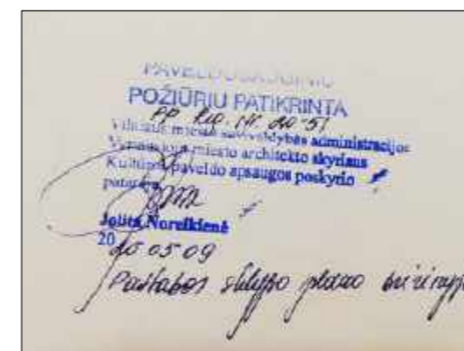 PAVELDOSAUGINIU
POŽIŪRIU PATIKRINTA
PP Reg. Nr. 20-51
Vilniaus miesto savivaldybės administracijos
Vyriausiojo miesto architekto skyriaus
Kultūros paveldo apsaugos poskyrio
Jolita Noreikienė
2020 05 09
Pastabos sklypo plano